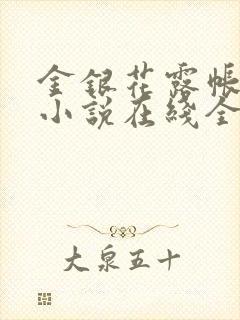 金銀花露帳
小說在綫全
大泉五十